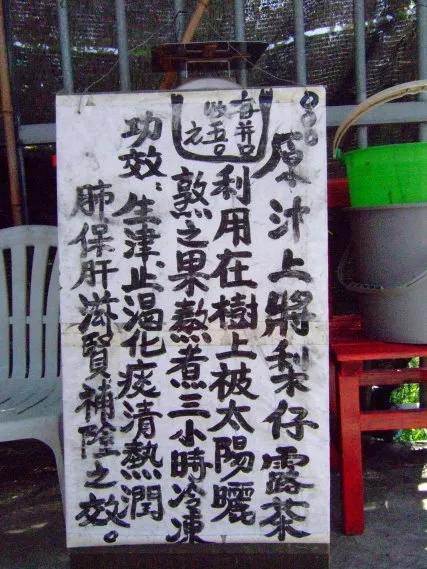 原汁上將梨仔露茶
每
五0元
利用在樹上被太陽曬
熟之果熬煮三小時冷凍
功效：生津止渴化痰清熱潤
肺保肝滋賢補陰之效。